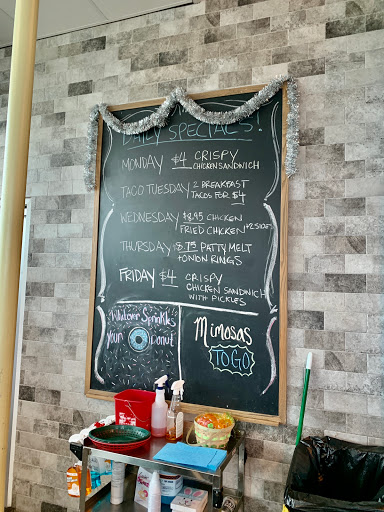 DAILY SPECIALS!
MONDAY $4 CRISPY
CHICKEN SANDWICH
TACO TUESDAY 2 BREAKFAST
TACOS FOR $4
WEDNESDAY $8.95 CHICKEN
FRIED CHICKEN +2 SIDES
THURSDAY $8.75 PATTY MELT
+ONION RINGS
FRIDAY $4 CRISPY
CHICKEN SANDWICH
WITH PICKLES
Whatever Sprinkles
your Donut
Mimosas
TO GO